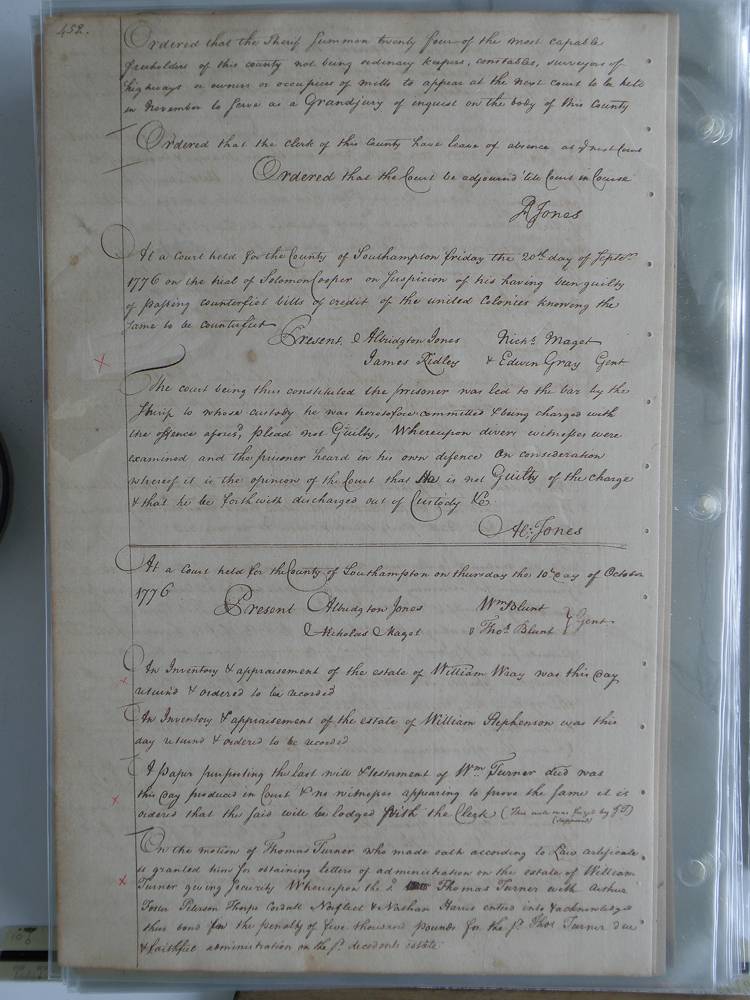 452.
Ordered that the Sherif Summon twenty four of the most capable
freeholders of this county not being ordinary keepers, constables, surveyors of
highways or owners or occupiers of mills to appear at the next court to be held
in November to serve as a Grandjury of inquest on the body of this County
Ordered that the clerk of this County have leave of absence at next Court
Ordered that the Court be adjournd 'till Court in Course
A Jones
At a Court held for the County of Southampton friday the 20th day of Septr.
1776 on the trial of Solomon Cooper on Suspicion of his having been guilty
of passing counterfiet bills of credit of the united Colonies knowing the
same to be counterfiet
Present Albridgton Jones Nichs. Maget
James Ridley & Edwin Gray Gent
The court being thus constituted the prisoner was led to the bar by the
Sherif to whose custody he was heretofore committed & being charged with
the offence aforesd. plead not Guilty, Whereupon divers witnesses were
examined and the prisoner heard in his own defence On consideration
whereof it is the opinion of the Court that He is not Guilty of the charge
& that he be forthwith discharged out of Custody &c.
Al: Jones
At a Court held for the County of Southampton on thursday the 10th day of October
1776
Present Albridgton Jones Wm Blunt
Nicholas Maget & Thos. Blunt } Gent
An Inventory & appraisement of the estate of William Wray was this day
returnd & ordered to be recorded
An Inventory & appraisement of the estate of William Stephenson was this
day returnd & ordered to be recorded
A paper purporting the last will & testament of Wm Turner decd was
this day produced in Court & no witnesses appearing to prove the same it is
ordered that the said will be lodged with the Clerk (This will was forged by
(supposed)
On the motion of Thomas Turner who made oath according to Law certificate
is granted him for obtaining letters of administration on the estate of William
Turner giving Security Whereupon the sd. Thomas Turner with Arthur
Foster Peterson Thorpe Cordall Norfleet & Nathan Harris entred into & acknowledged
their bond in the penalty of five thousand pounds for the sd. Thos Turner due
& faithful administration on the sd. decedents estate